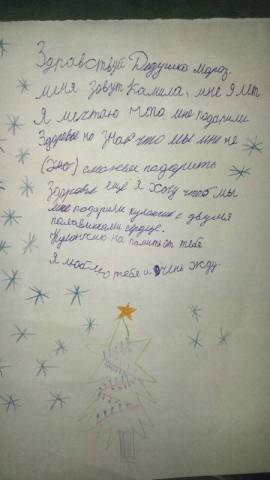 Здравствуй Дедушка Мороз.
меня зовут Камила, мне 9 лет
Я мечтаю чоба мне подарили
Здоровье но знаю что мы мне не
(это) сможем подарить
Здоровя ещё я хочу чтоб мы
мне подарили кулончик с двумя
половинками сердце.
Кулончию на помить от тебе
Я люблю тебя и очень жду.